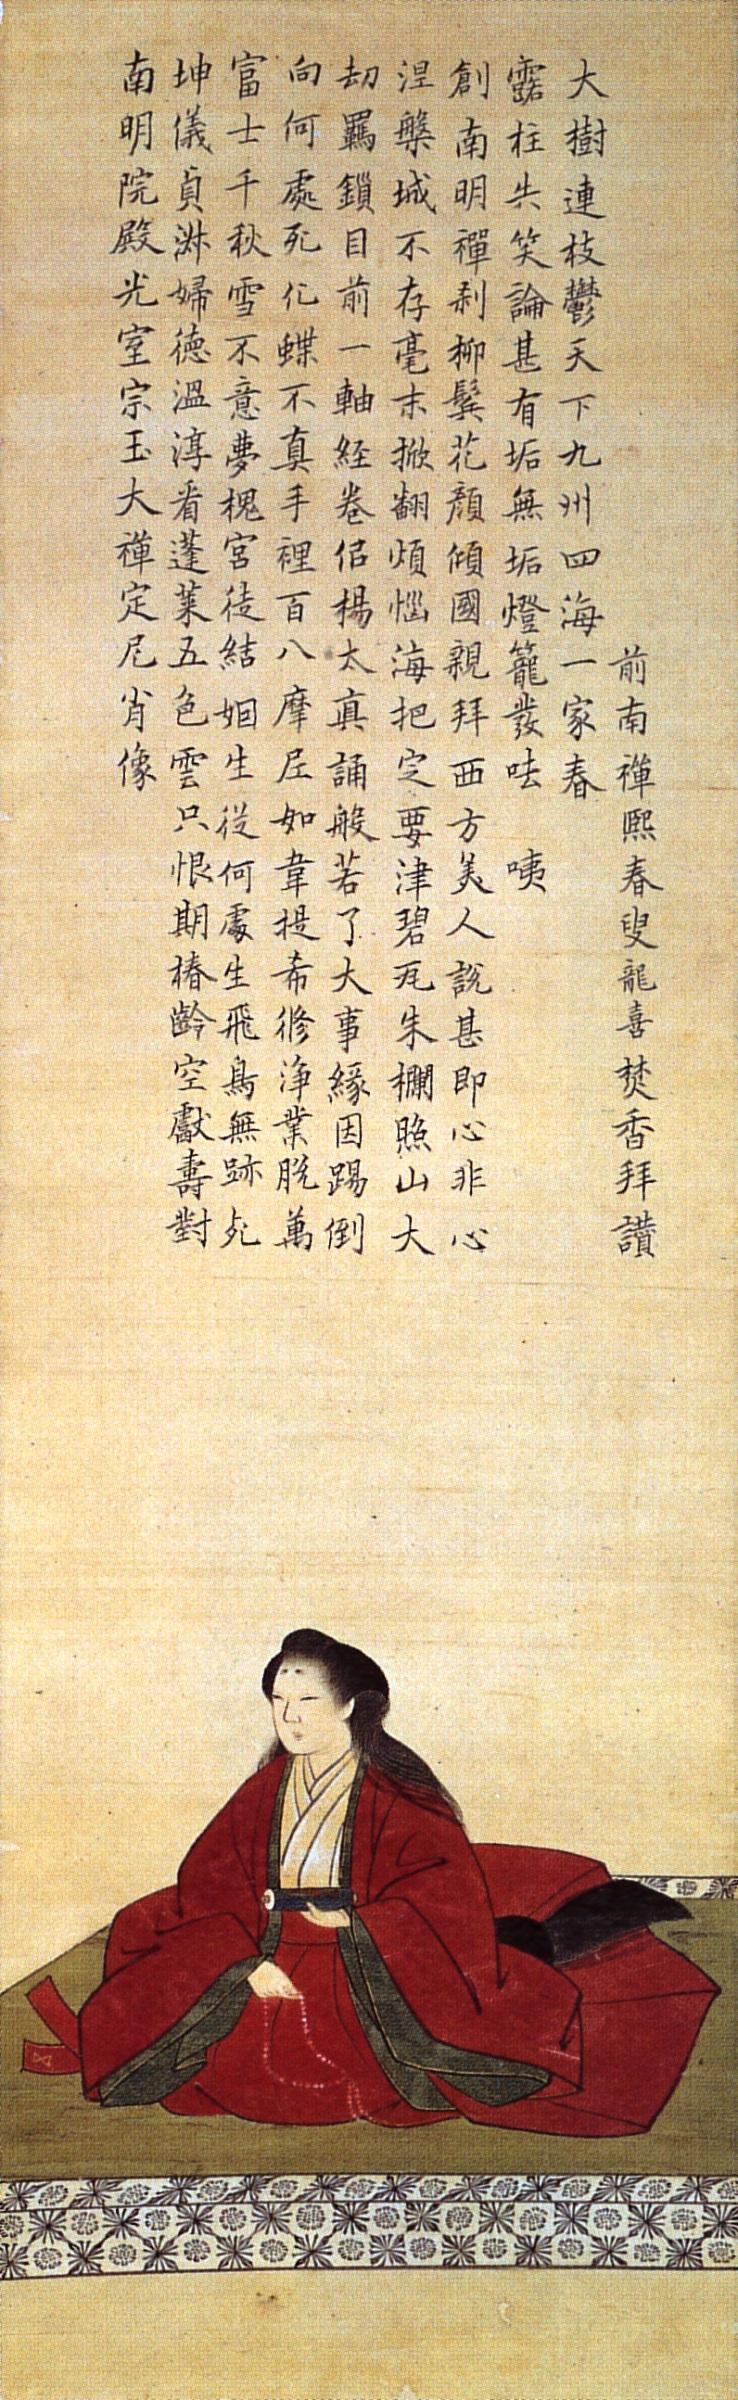 南明院殿光室宗玉大禪定尼肖像
坤儀貞淋婦德溫淳看蓬萊五色雲只恨期椿齡空獻壽對
富士千秋雪不意夢槐宮徒結姻生從何處生飛鳥無跡死
向何處死化蝶不真手裡百八摩尼如韋提希修淨業脫萬
劫羈鎖目前一軸經卷侶楊太真誦般若了大事緣因踢倒
涅槃城不存毫末掀翻煩惱海把定要津碧瓦朱欄照山大
創南明禪刹柳鬢花顏傾國親拜西方美人說甚即心非心
露柱共笑論甚有垢無垢燈籠發呿 咦
大樹連枝鬱天下九州四海一家春
前南禪熙春叟龍喜焚香拜讚